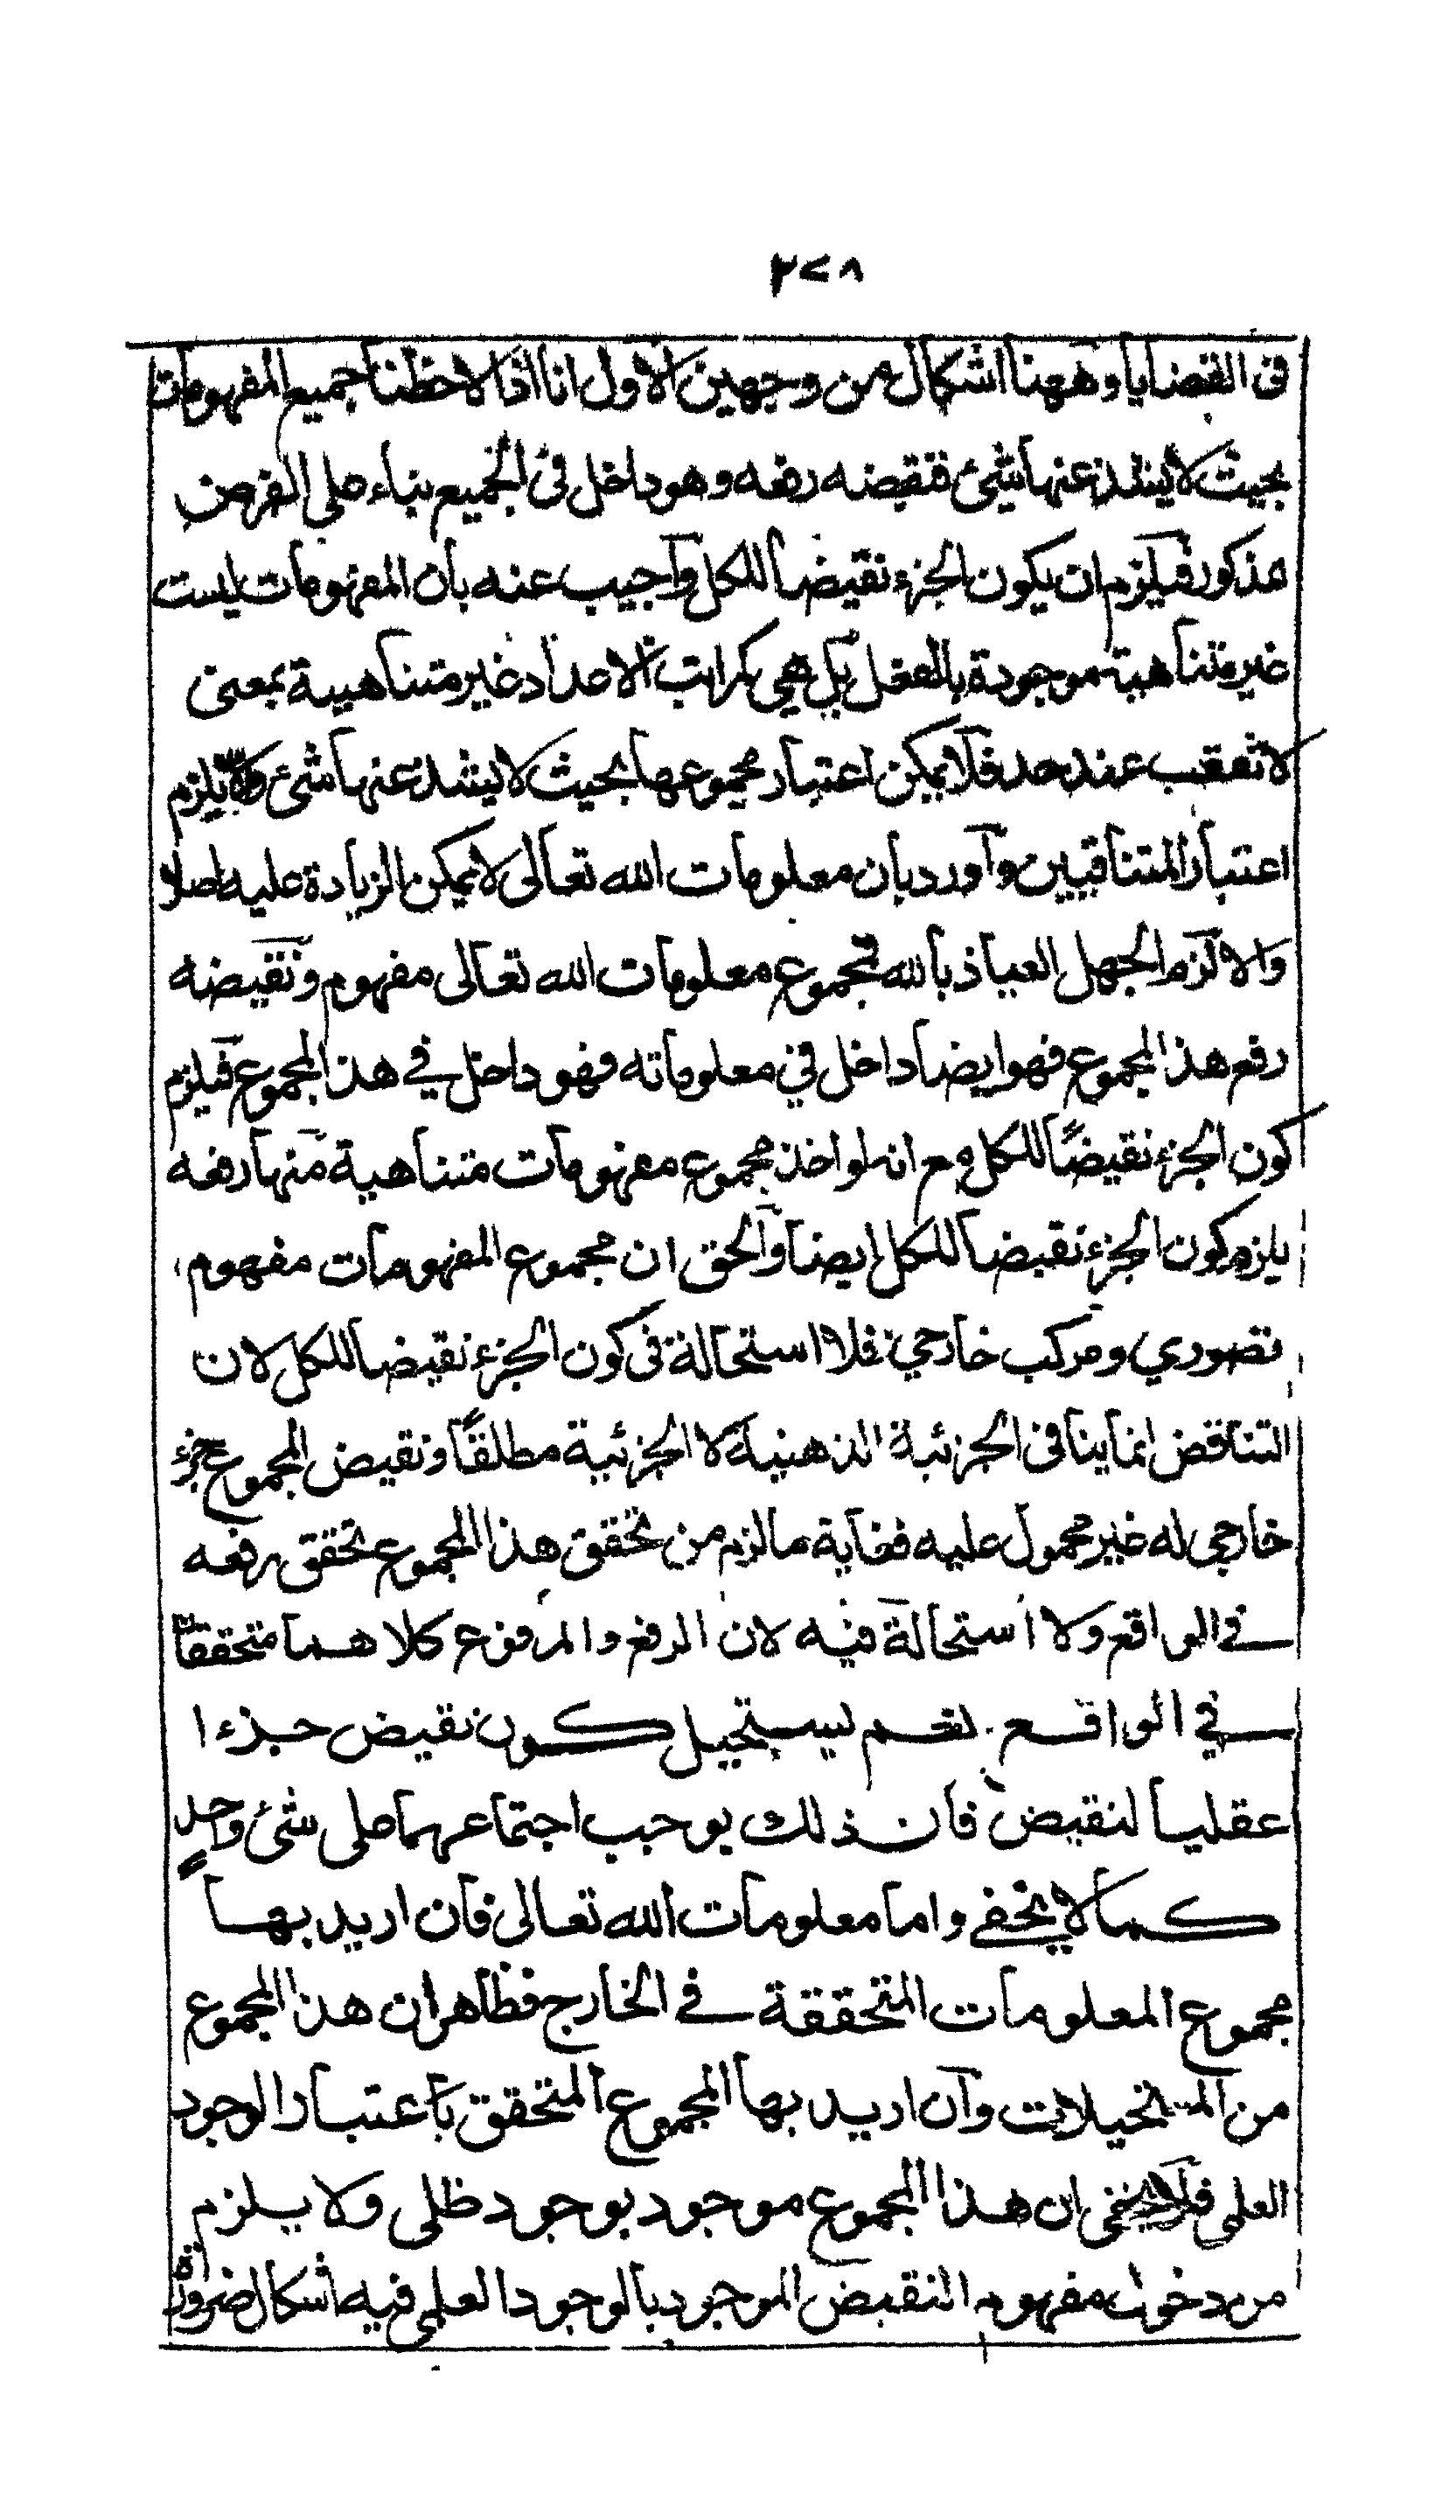 ٢٧٨
فى القضايا وههنا اشكال من وجهين الاول انا اذا لاحظنا جميع المفهومات
بحيث لا يشذ عنها شئ فنقيضه رفعه وهو داخل فى الجميع بناء على الفرض
مذكور فيلزم ان يكون الجزء نقيضا للكل وآجيب عنه بان المفهومات ليست
غير متناهية موجودة بالفعل بل هى كمراتب الاعداد غير متناهية بمعنى
لا تقف عند حد فلا يمكن اعتبار مجموعها بحيث لا يشذ عنها شئ يلزم
اعتبار المتنافيين وآورد بان معلومات الله تعالى لا يمكن الزيادة عليها اصلا
والا لزم الجهل العياذ بالله فمجموع معلومات الله تعالى مفهوم ونقيضه
رفع هذا المجموع فهو ايضا داخل في معلوماته فهو داخل في هذا المجموع فيلزم
كون الجزء نقيضًا للكل مع انه لو اخذ مجموع مفهومات متناهية منها رفعه
يلزم كون الجزء نقيضا للكل ايضا وآلحق ان مجموع المفهومات مفهوم
تصوري ومركب خارجي فلا استحالة فى كون الجزء نقيضا للكل لان
التناقض انما ينافى الجزئية الذهنية لا الجزئية مطلقًا ونقيض المجموع جزء
خارجي له غير محمول عليه فغاية ما لزم من تحقق هذا المجموع تحقق رفعه
في الواقع ولا استحالة فيه لان الرفع والمرفوع كلا هما متحققان
في الواقع نعم يستحيل كون نقيض جزءا
عقليا لنقيض فان ذلك يوجب اجتماعهما على شئ واحدٍ
كما لا يخفى واما معلومات الله تعالى فان اريد بها
مجموع المعلومات المتحققة في الخارج فظاهر ان هذا المجموع
من وآن اريد بها المجموع المتحقق باعتبار الوجود
العلمي فلا يخفى ان هذا المجموع موجود بوجود ظلى ولا يلزم
من دخول مفهوم النقيض الموجود بالوجود العلمي فيه اشكال ضرورة